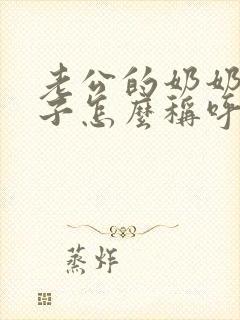 老公的奶奶
子怎麼稱呼
蒸炸